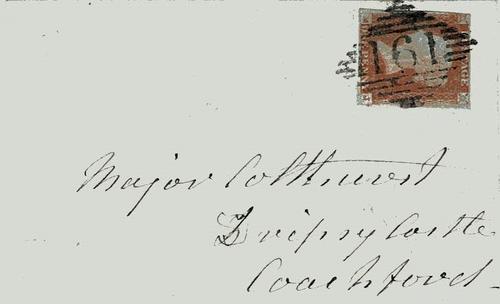 161
Major Colthurst
Dripsey Castle
Coachford